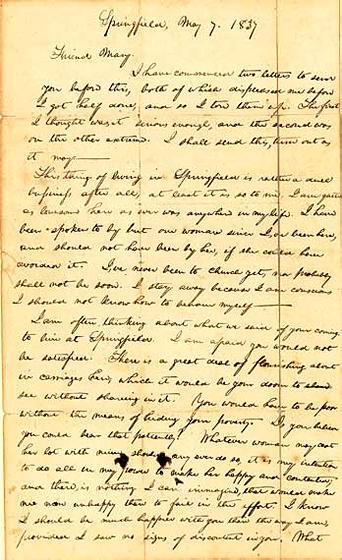 Springfield, May 7. 1837
Friend Mary.
I have commenced two letters to send
you before this, both of which displeased me before
I got half done, and so I tore them up. The first
I thought wasn't serious enough, and the second was
on the other extreme. I shall send this, turn out as
it may—
This thing of living in Springfield is rather a dull
business after all, at least it is so to me. I am quite
as lonesome here as ever was anywhere in my life. I have
been spoken to by but one woman since I've been here,
and should not have been by her, if she could have
avoided it. I've never been to church yet, nor probably
shall not be soon. I stay away because I am conscious
I should not know how to behave myself—
I am often thinking about what we said of your coming
to live at Springfield. I am afraid you would not
be satisfied. There is a great deal of flourishing about
in carriages here, which it would be your doom to
see without sharing in it. You would have to be poor
without the means of hiding your poverty. Do you believe
you could bear that patiently? Whatever woman may cast
her lot with mine, should any ever do so, it is my intention
to do all in my power to make her happy and contented,
and there is nothing I can immagine, that would make
me more unhappy than to fail in the effort. I know
I should be much happier with you than the way I am,
provided I saw no signs of discontent in you. What